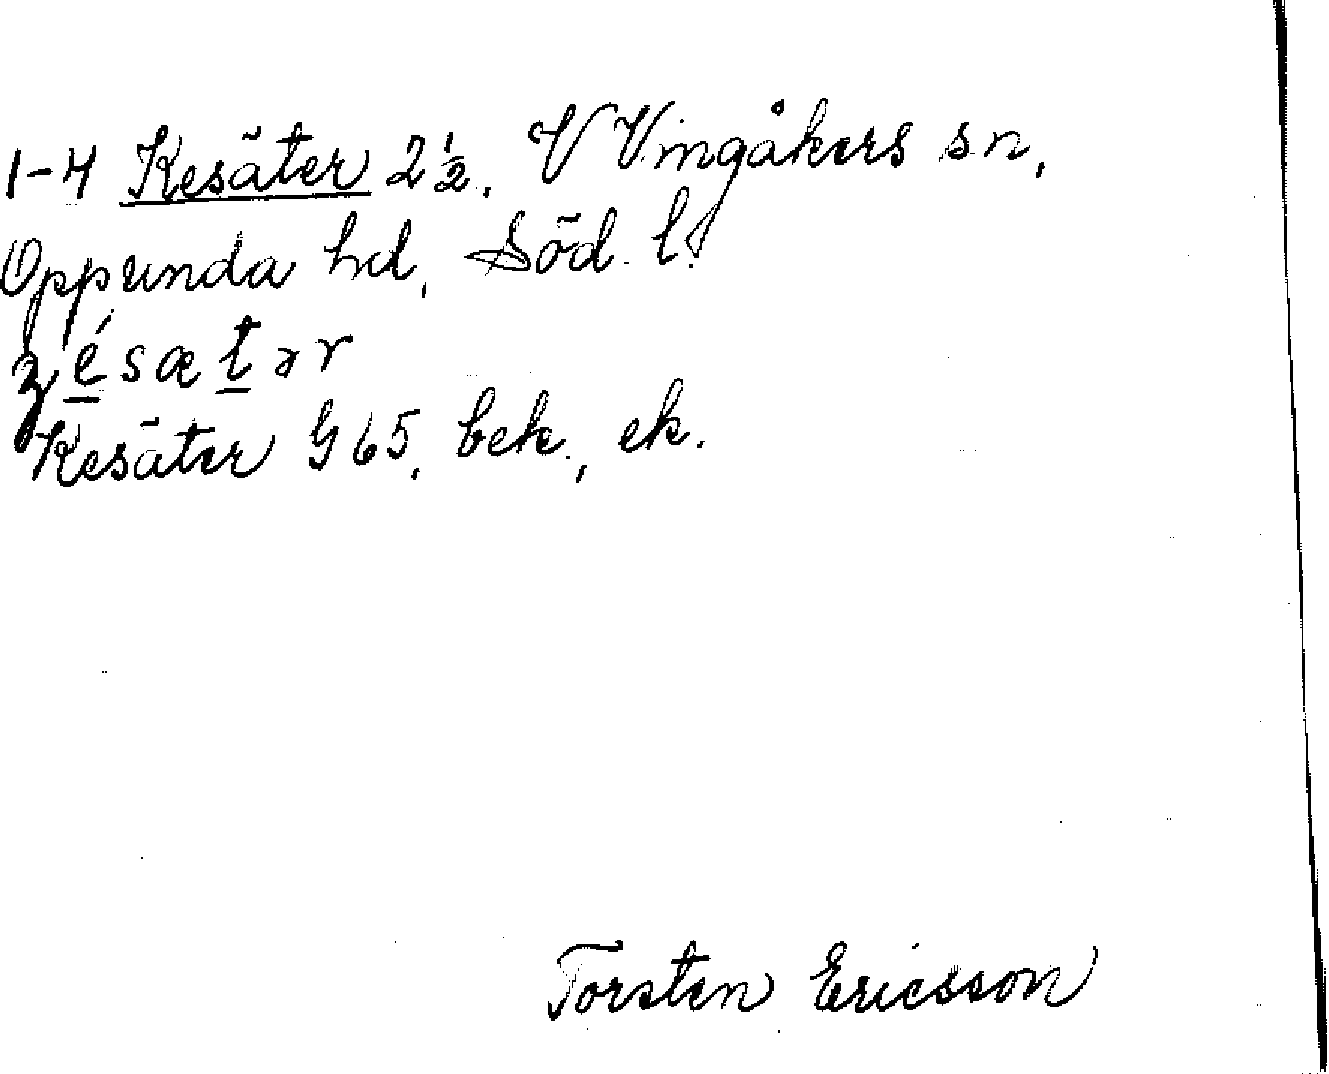 1-4 Kesäter 2 ½. V Vingåkers sn,
Oppunda hd, Söd. l.
ʒésætər
Kesäter G 65, bek., ek.
Torsten Ericsson